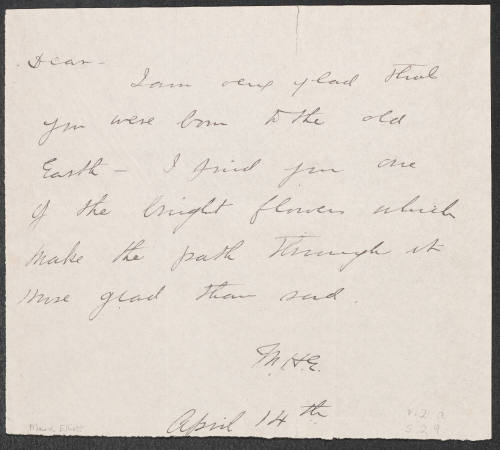 Dear -
I am very glad that
you were born to the old
Earth - I find you one
of the bright flowers which
make the path through it
more glad than sad.
M.H.E.
April 14th
Maud Elliott
v. 2 a
S. 29